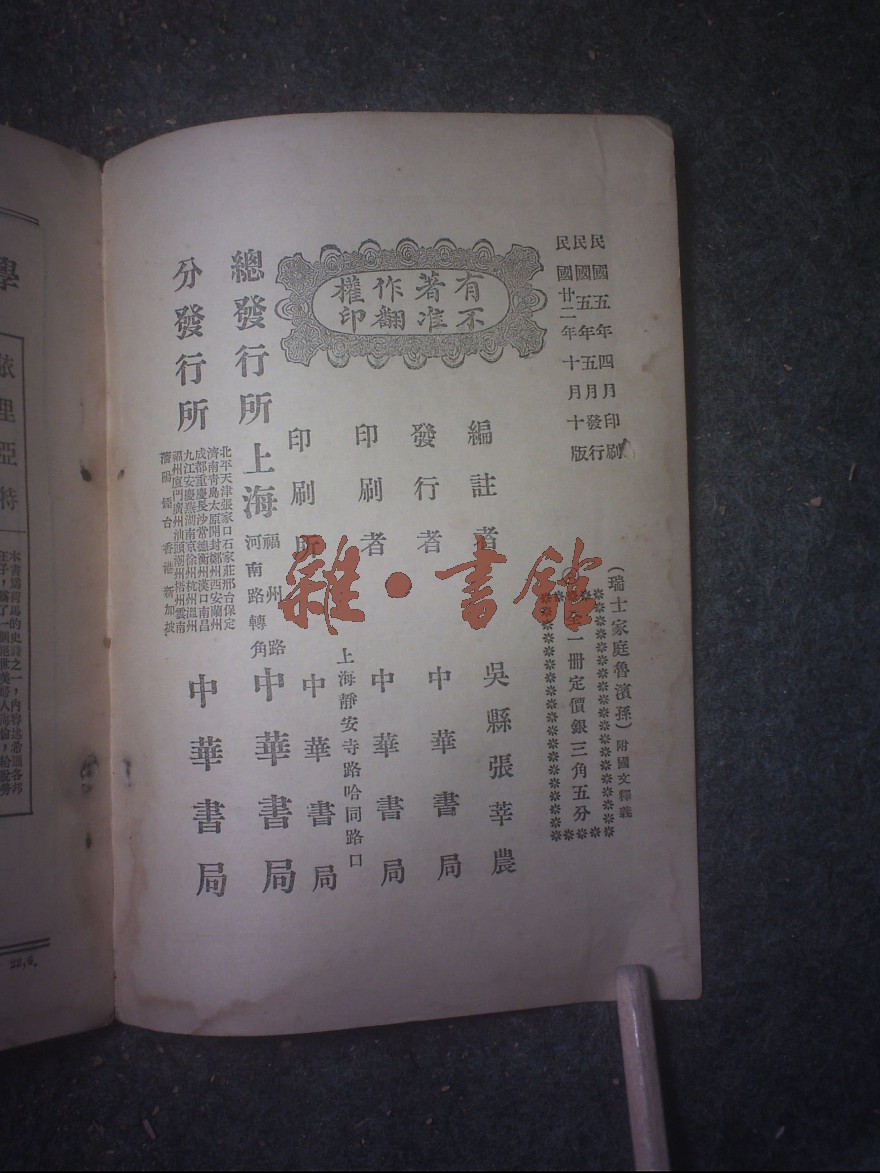 民國五年四月印刷
民國五年五月發行
民國廿二年十月十版
(瑞士家庭魯濱孫)附國文釋義
全一冊定價銀三角五分
有著作權
不准翻印
編註者 吳縣張莘農
發行者 中華書局
印刷者 中華書局
上海靜安寺路哈同路口
印刷所 中華書局
總發行所 上海 福州路河南路轉角 中華書局
分發行所
北平天津張家口石家莊邢台保定
濟南青島太原開封鄭州西安蘭州
成都重慶長沙常德衡州漢口南昌
九江安慶蕪湖南京徐州杭州溫州
福州廈門廣州汕頭潮州梧州雲南
瀋陽煙台香港新加坡
中華書局
雜·書館
學
依里亞特
本書為荷馬的史詩之一，內容述希臘各邦
22,6.